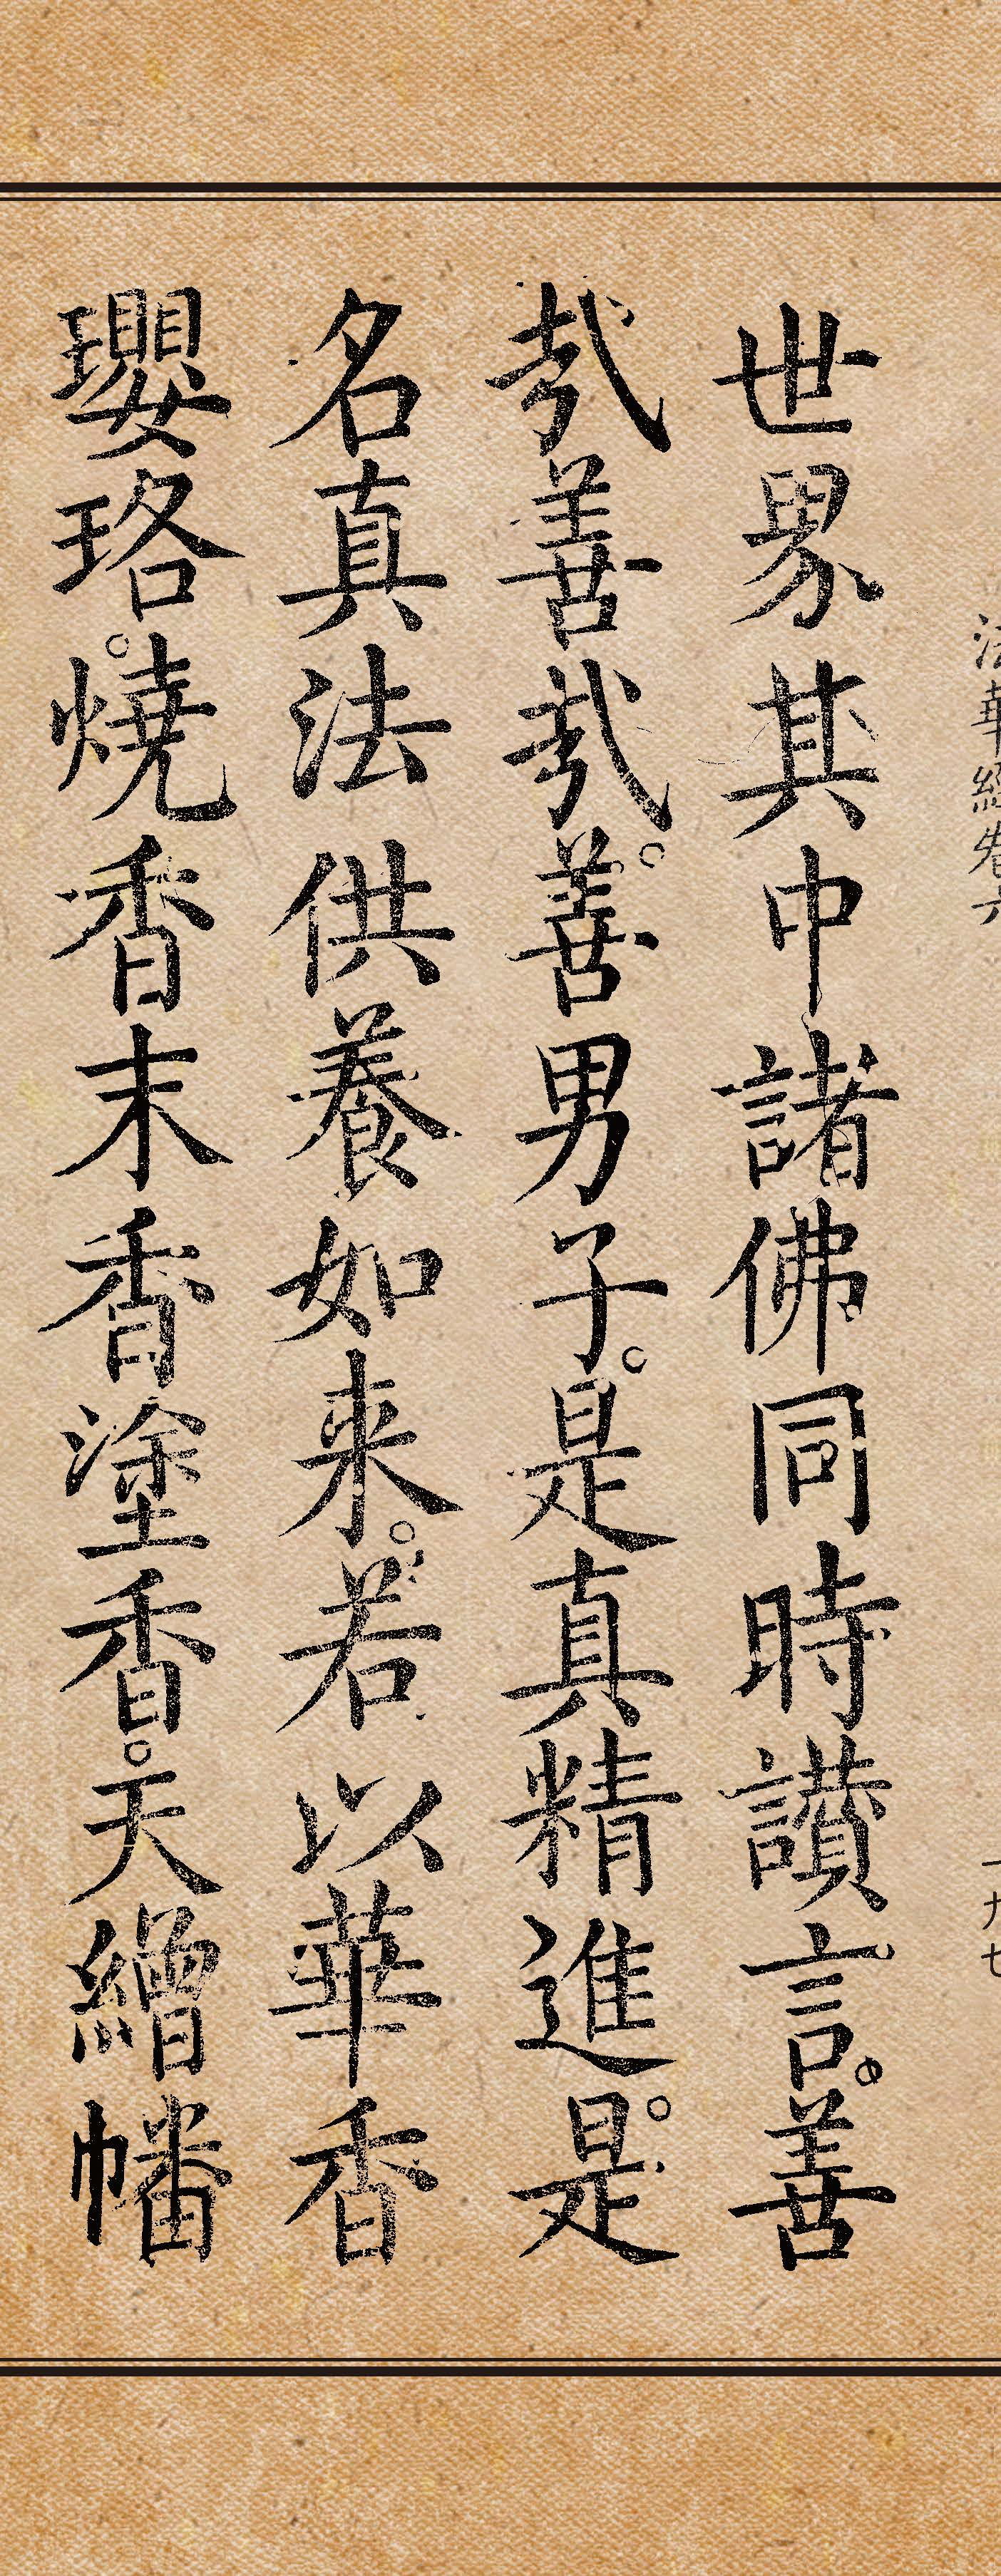 法華經卷六
一九七
世界其中諸佛同時讃言。善
哉善哉。善男子。是真精進。是
名真法供養如来。若以華香
瓔珞。燒香末香塗香。天繒幡